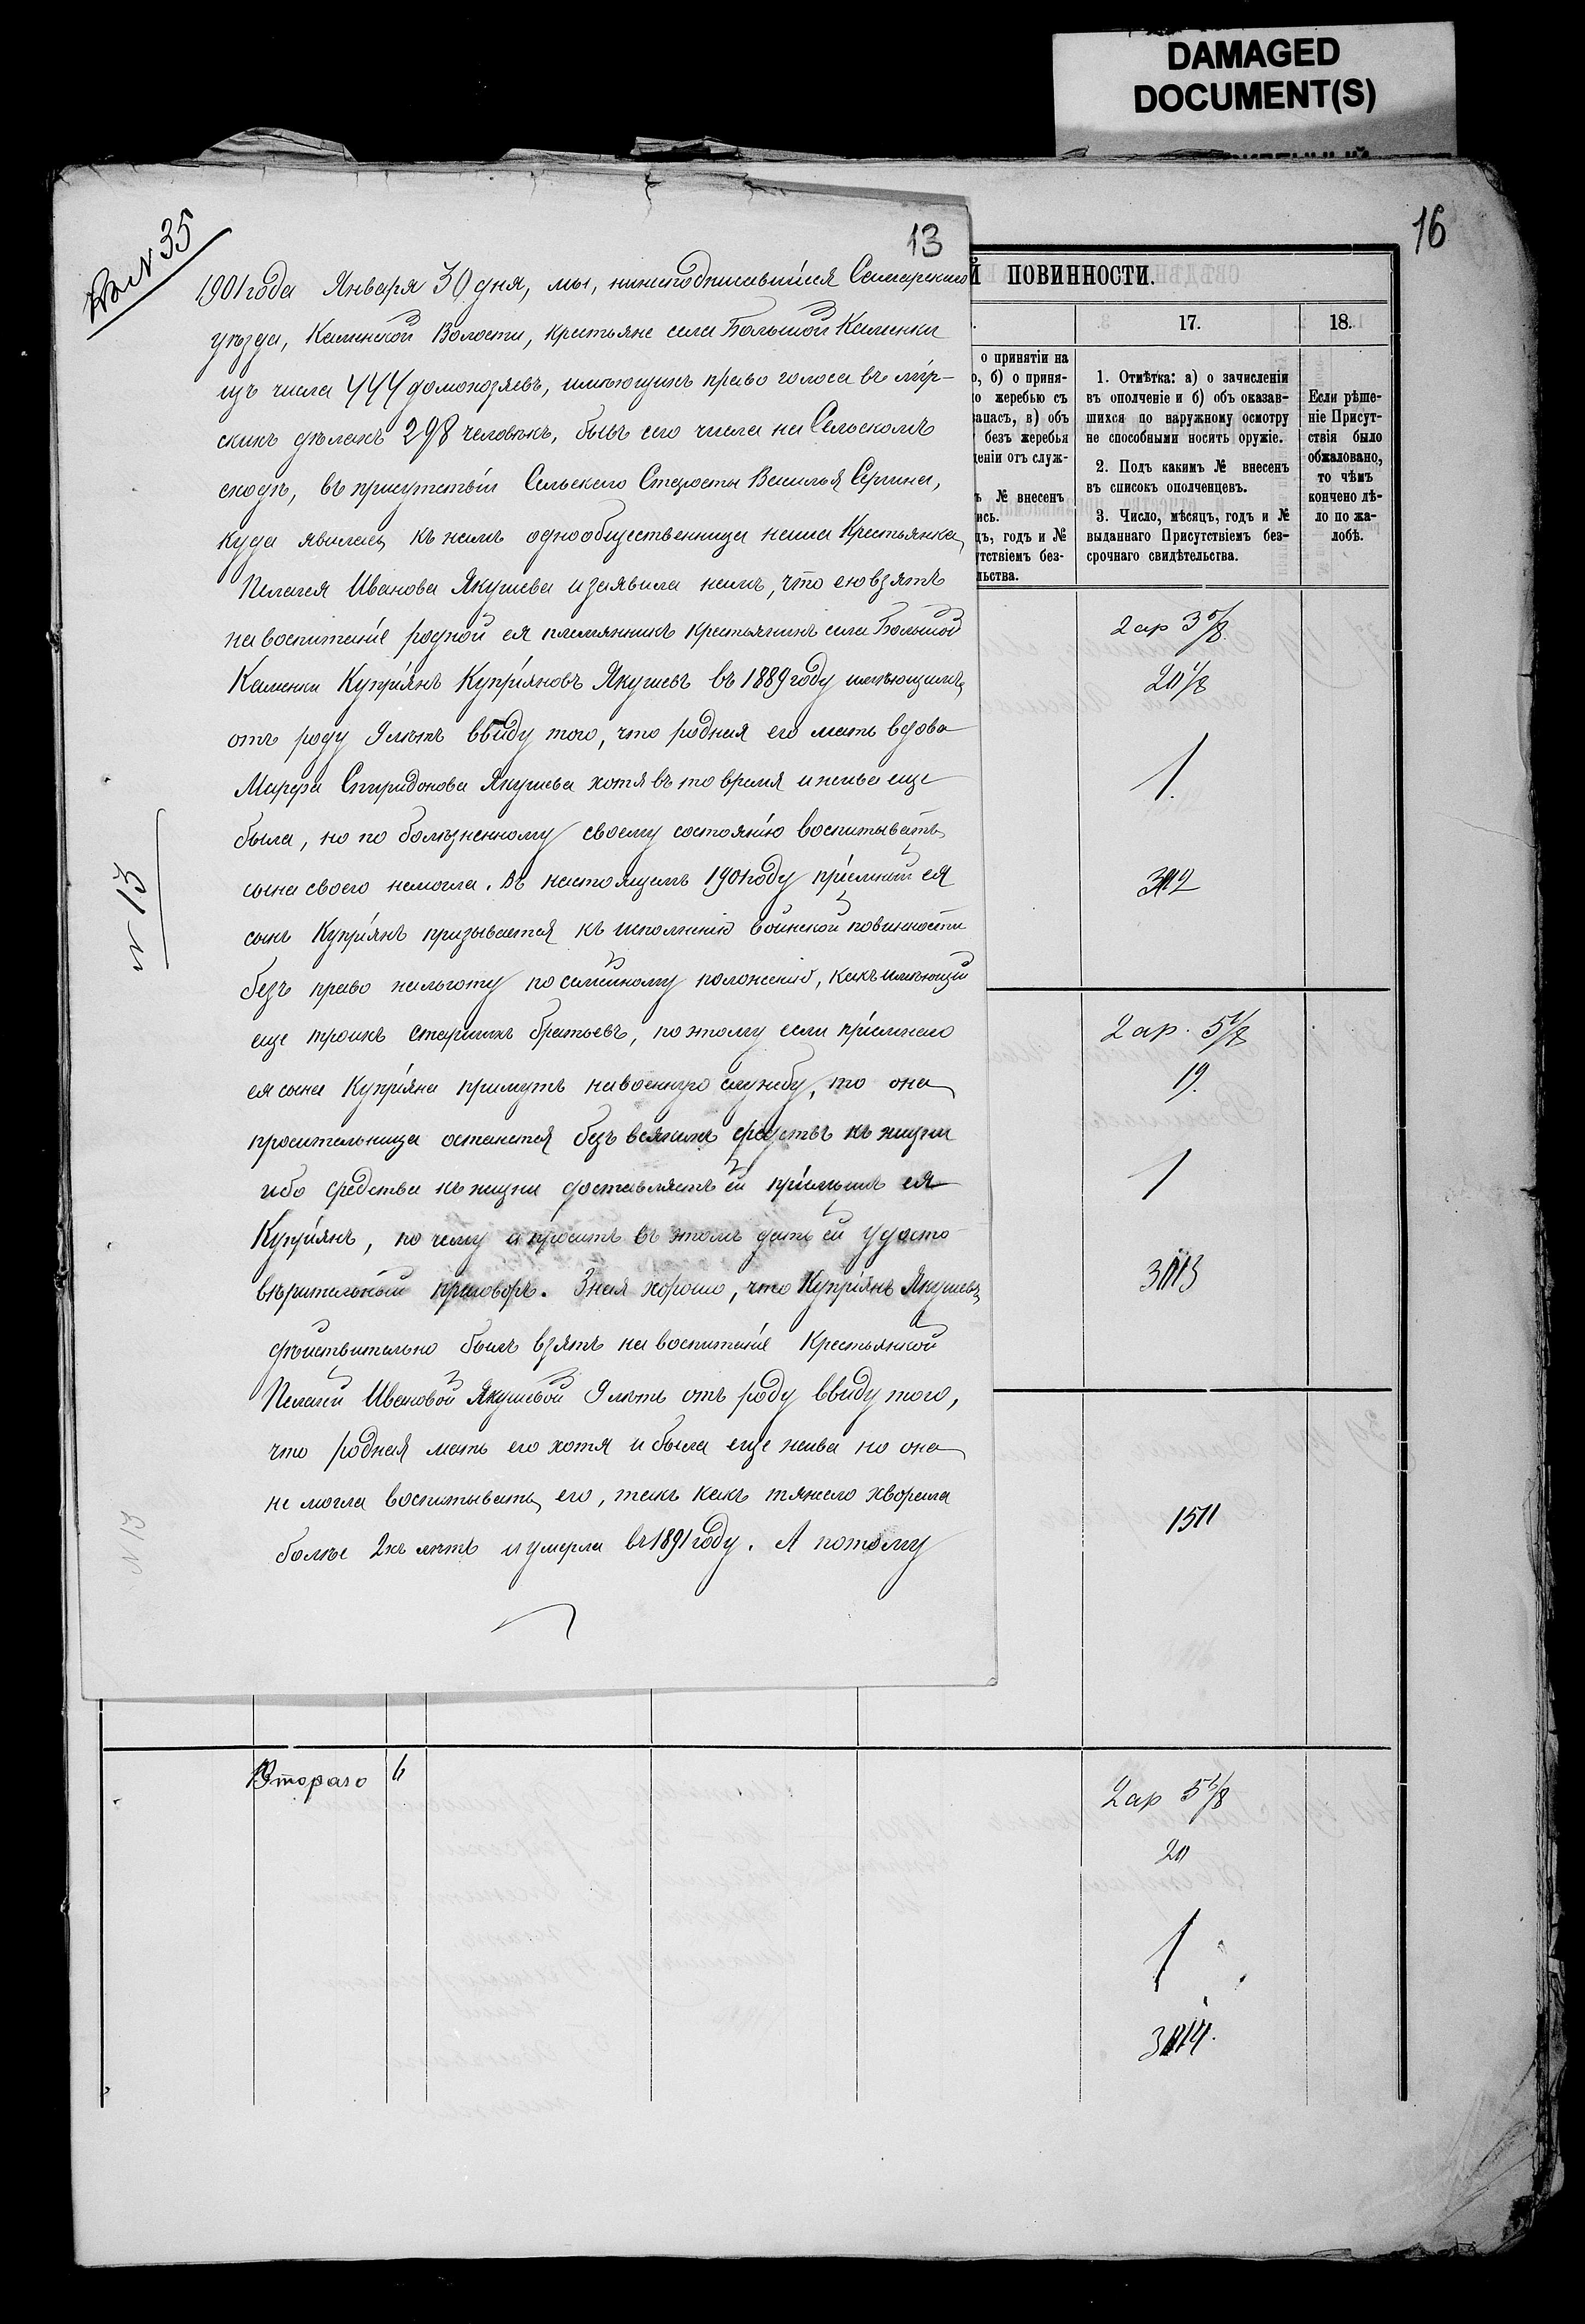 DAMAGED
DOCUMENT(S)
16
13
№ 35
1901 года Января 30 дня, мы, нижеподписавшіися Самарскаго
уѣзда, Каменской Волости, крестьяне села Большой Каменки
изъ числа 444 домохозяевъ, имѣющихъ право голоса въ мір-
скихъ дѣлахъ 298 человѣкъ, бывъ сего числа на Сельскомъ
сходѣ, въ присутствіи Сельскаго Старосты Василья Сергина,
куда явилась къ намъ однообщественница наша Крестьянка
Пелагея Иванова Якушева и заявила намъ, что ею взятъ
на воспитаніе родной ея племянникъ крестьянинъ села Большой
Каменки Купріянъ Купріяновъ Якушевъ въ 1889 году имѣющимъ
отъ роду 9 лѣтъ ввиду того, что родная его мать вдова
Марфа Спиридонова Якушева хотя въ то время и жива еще
была, но по болѣзненному своему состоянію воспитывать
сына своего немогла. Въ настоящемъ 1901 году пріемный ея
сынъ Купріянъ призывается къ исполненію воинской повинности
безъ право нальготу по семейному положенію, какъ имѣющій
еще троихъ старшихъ братьевъ, по этому если пріемнаго
ея сына Купріяна примутъ на военную службу, то она
просительница останется безъ всякихъ средствъ къ жизни
ибо средства къ жизни доставляетъ ей пріемышъ ея
Купріянъ, по чему и проситъ въ этомъ дать ей удосто
вѣрительный приговоръ. Зная хорошо, что Купріянъ Якушевъ
дѣйствительно былъ взятъ на воспитаніе Крестьянкой
Пелагей Ивановой Якушевой 9 лѣтъ отъ роду ввиду того,
что родная мать его хотя и была еще жива но она
не могла воспитывать его, такъ какъ тяжело хворала
болѣе 2хъ лѣтъ и умерла въ 1891 году. А потому
№ 13
№ 13
Й ПОВИННОСТИ.
17.
18.
о принятіи на
о, б) о приня-
о жеребью съ
запасъ, в) объ
безъ жеребья
деніи отъ служ-
ъ № внесенъ
ись.
цъ, годъ и №
утствіемъ без-
льства.
1. Отмѣтка: а) о зачисленіи
въ ополченіе и б) объ оказав-
шихся по наружному осмотру
не способными носить оружіе.
2. Подъ какимъ № внесенъ
въ списокъ ополченцевъ.
3. Число, мѣсяцъ, годъ и №
выданнаго Присутствіемъ без-
срочнаго свидѣтельства.
Если рѣше-
ніе Присут-
ствія было
обжаловано,
то чѣмъ
кончено дѣ-
ло по жа-
лобѣ.
2 ар
1.
2 ар.
19.
1
Втораго
2 ар
20
1